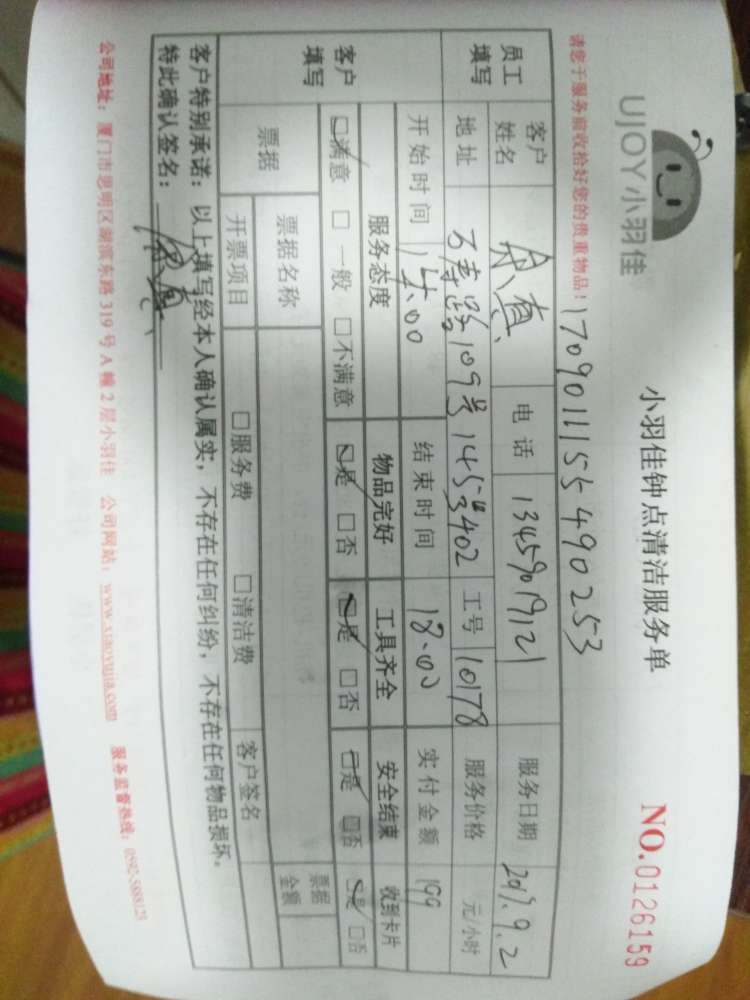 UJOY小羽佳
小羽佳钟点清洁服务单
NO.0126159
请您于服务前收拾好您的贵重物品！
170901115549 0253
员工填写
客户姓名
电话 13459019121
服务日期 2017.9.2
地址 109号 402
工号 10178
服务价格 元/小时
客户填写
开始时间 14:00
结束时间 18:00
实付金额 199
服务态度 物品完好 工具齐全 安全结束 收到卡片
☑满意 □一般 □不满意 ☑是 □否 ☑是 □否 ☑是 □否 ☑是 □否
票据
票据名称
票据金额
开票项目 □服务费 □清洁费 客户签名
客户特别承诺：以上填写经本人确认属实，不存在任何纠纷，不存在任何物品损坏。
特此确认签名：
公司地址：厦门市思明区湖滨东路319号A幢2层小羽佳 公司网站：www.xiaoyujia.com 服务监督热线：